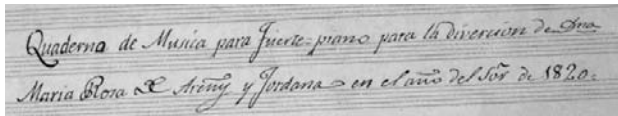 Quaderno de Musica para fuerte-piano para la divercion de Dña
Maria Rosa de Areñy y Jordana en el año del Sõr de 1820.